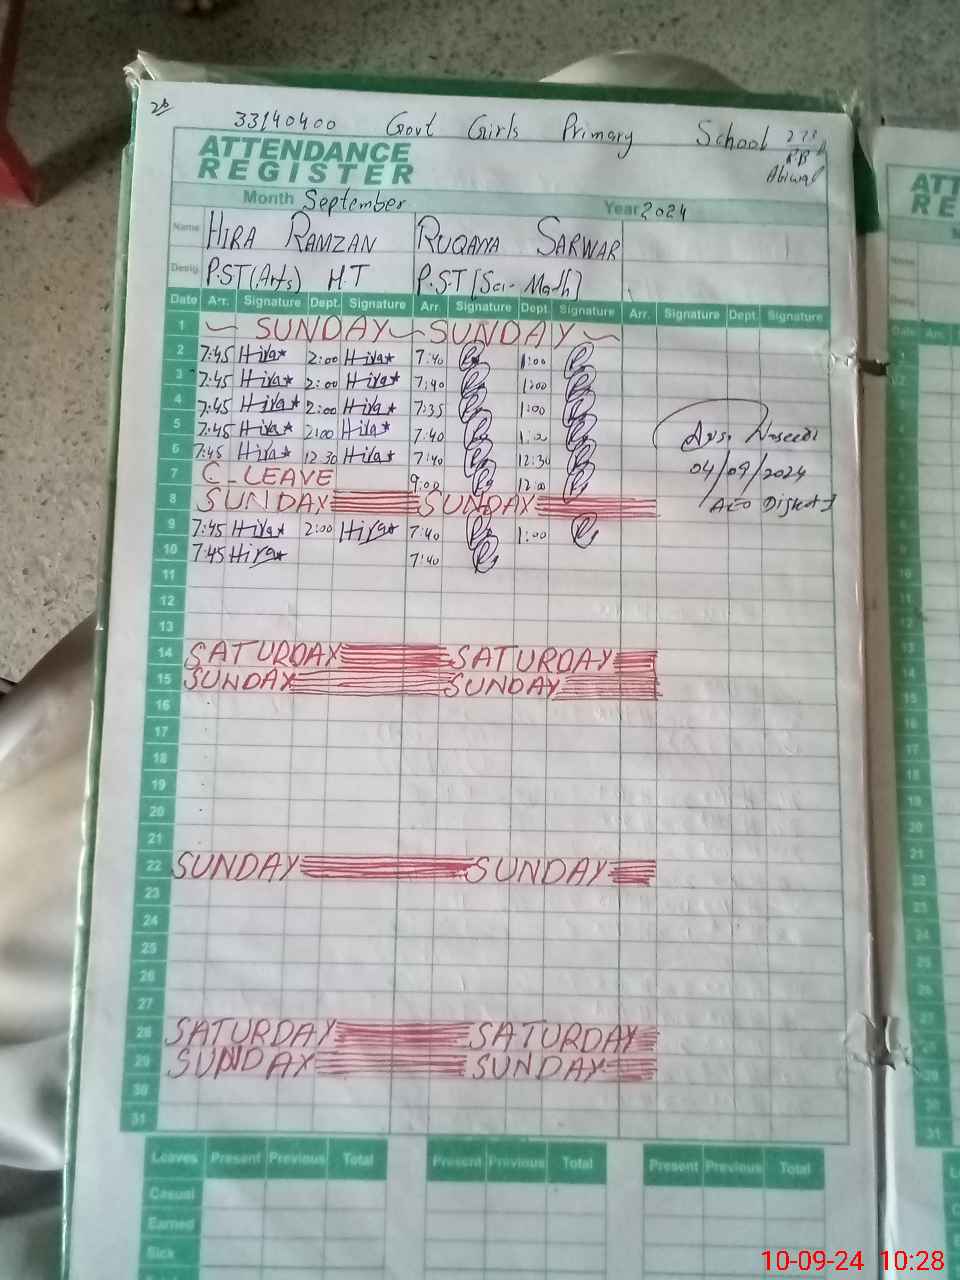 26
33140400 Govt Girls Primary School 273
RB
Abiwal
ATTENDANCE
REGISTER
Month September Year 2024
Name HIRA RAMZAN RUQAYYA SARWAR
Desig. P.ST(Arts) H.T P.S.T [Sci-Math]
Date Arr. Signature Dept. Signature Arr. Signature Dept. Signature Arr. Signature Dept. Signature
1 SUNDAY SUNDAY
2 7:45 Hira 2:00 Hira 7:40 1:00
3 7:45 Hira 2:00 Hira 7:40 1:00
4 7:45 Hira 2:00 Hira 7:35 1:00
5 7:45 Hira 2:00 Hira 7:40 1:00
6 7:45 Hira 12:30 Hira 7:40 12:30
04/09/2024
7 C-LEAVE 9:00 12:00
8 SUNDAY SUNDAY
AEO
9 7:45 Hira 2:00 Hira 7:40 1:00
10 7:45 Hira 7:40
11
12
13
14 SATURDAY SATURDAY
15 SUNDAY SUNDAY
16
17
18
19
20
21
22 SUNDAY SUNDAY
23
24
25
26
27
28 SATURDAY SATURDAY
29 SUNDAY SUNDAY
30
31
Leaves Present Previous Total Present Previous Total Present Previous Total
Casual
Earned
Sick
10-09-24 10:28